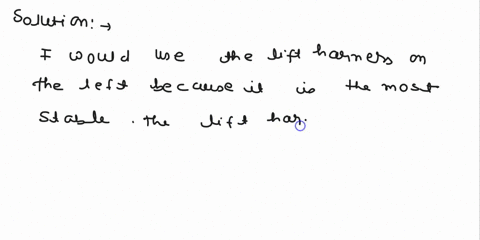 Solution:→
I would use the lift harness on
the left because it is the most
stable. the lift har